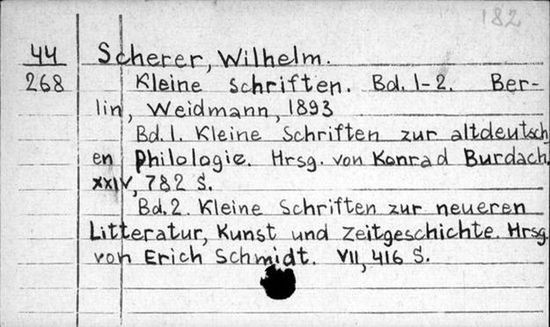 182
44 Scherer, Wilhelm.
268 Kleine Schriften. Bd. 1-2. Ber-
lin, Weidmann, 1893
Bd. 1. Kleine Schriften zur altdeutsch
en Philologie. Hrsg. von Konrad Burdach.
XXIV, 782 S.
Bd. 2. Kleine Schriften zur neueren
Litteratur, Kunst und Zeitgeschichte. Hrsg
von Erich Schmidt. VII, 416 S.